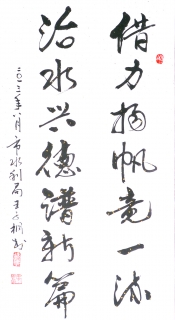 借力扬帆竞一流
治水兴德谱新篇
二〇一三年八月市水利局王文桐书